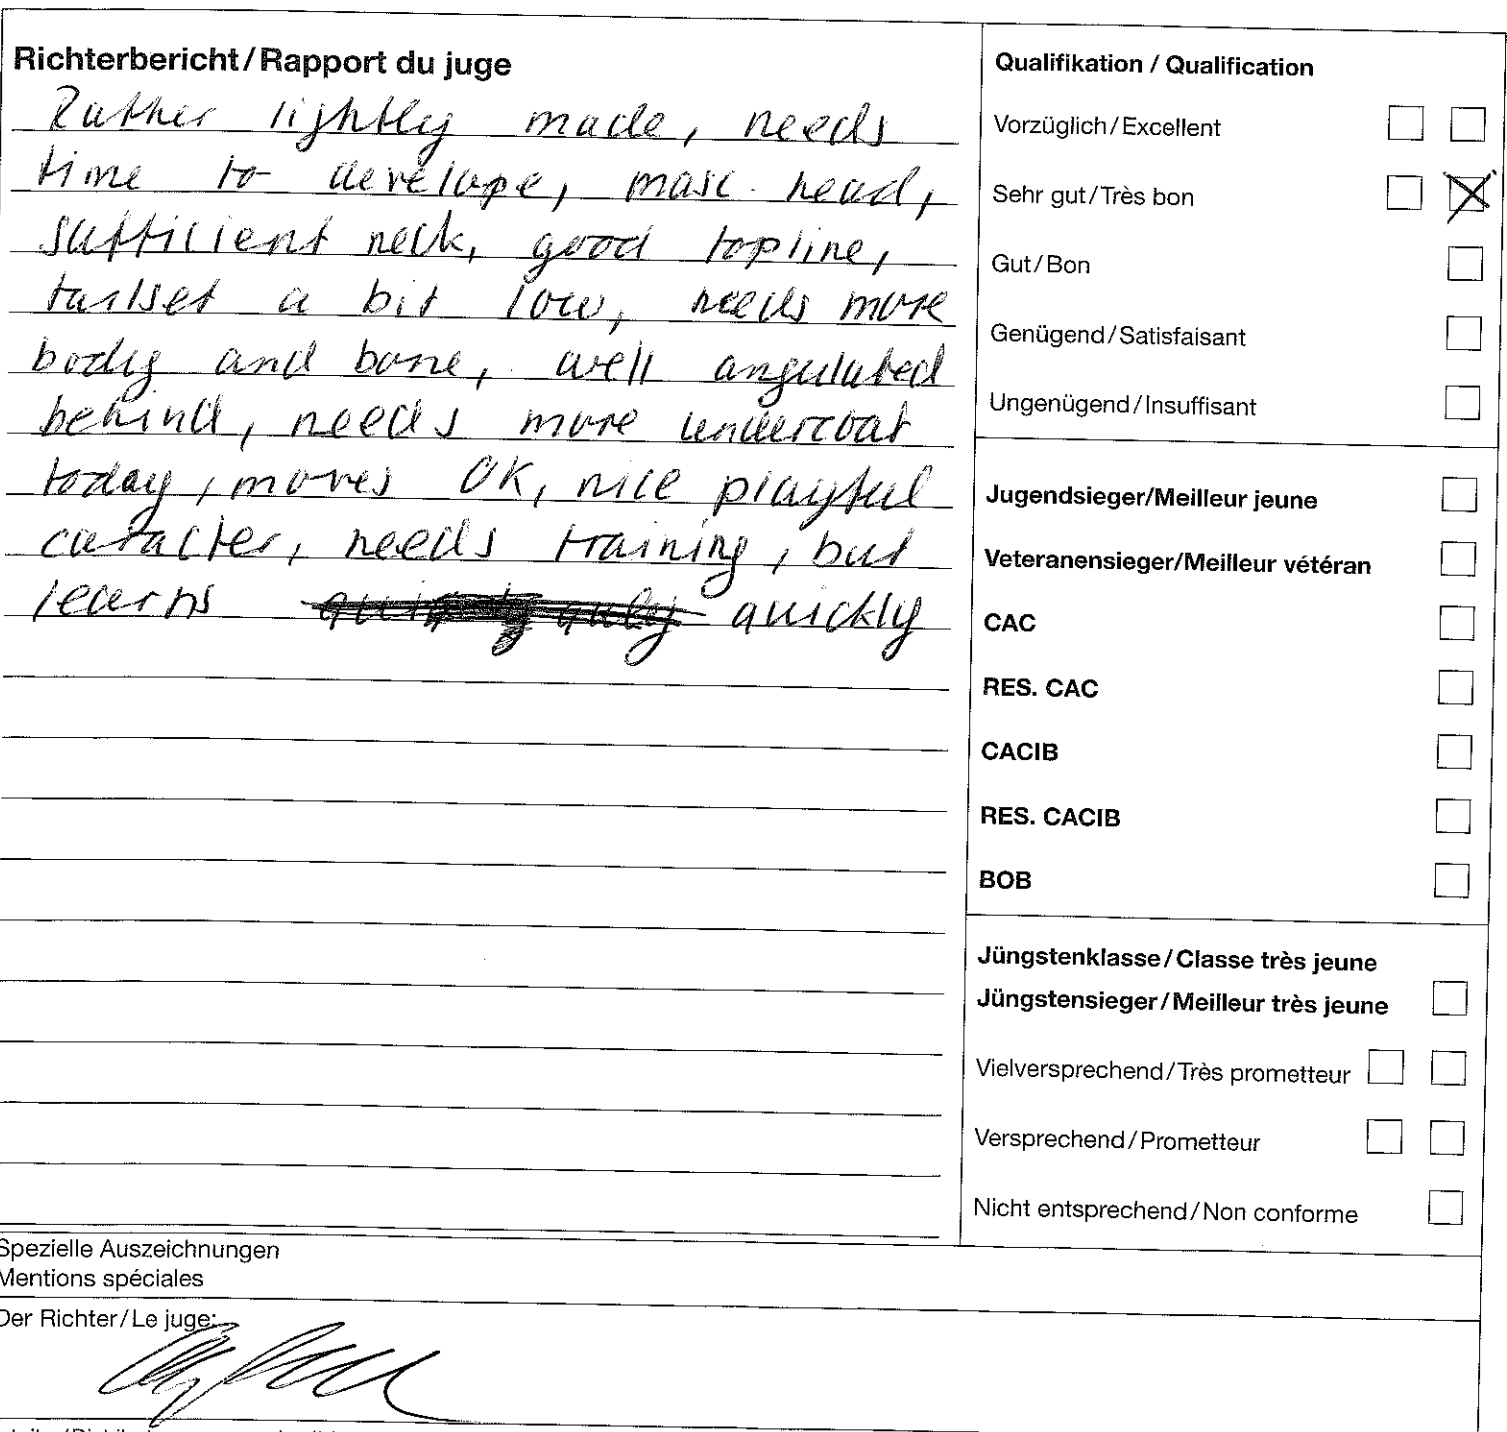 Richterbericht/Rapport du juge
Rather lightly made, needs
time to develope, masc. head,
sufficient neck, good topline,
tailset a bit low, needs more
body and bone, well angulated
behind, needs more undercoat
today, moves OK, nice playful
caracter, needs training, but
learns quickly
Qualifikation / Qualification
Vorzüglich/Excellent
Sehr gut/Très bon
Gut/Bon
Genügend/Satisfaisant
Ungenügend/Insuffisant
Jugendsieger/Meilleur jeune
Veteranensieger/Meilleur vétéran
CAC
RES. CAC
CACIB
RES. CACIB
BOB
Jüngstenklasse/Classe très jeune
Jüngstensieger/Meilleur très jeune
Vielversprechend/Très prometteur
Versprechend/Prometteur
Nicht entsprechend/Non conforme
Spezielle Auszeichnungen
Mentions spéciales
Der Richter/Le juge: